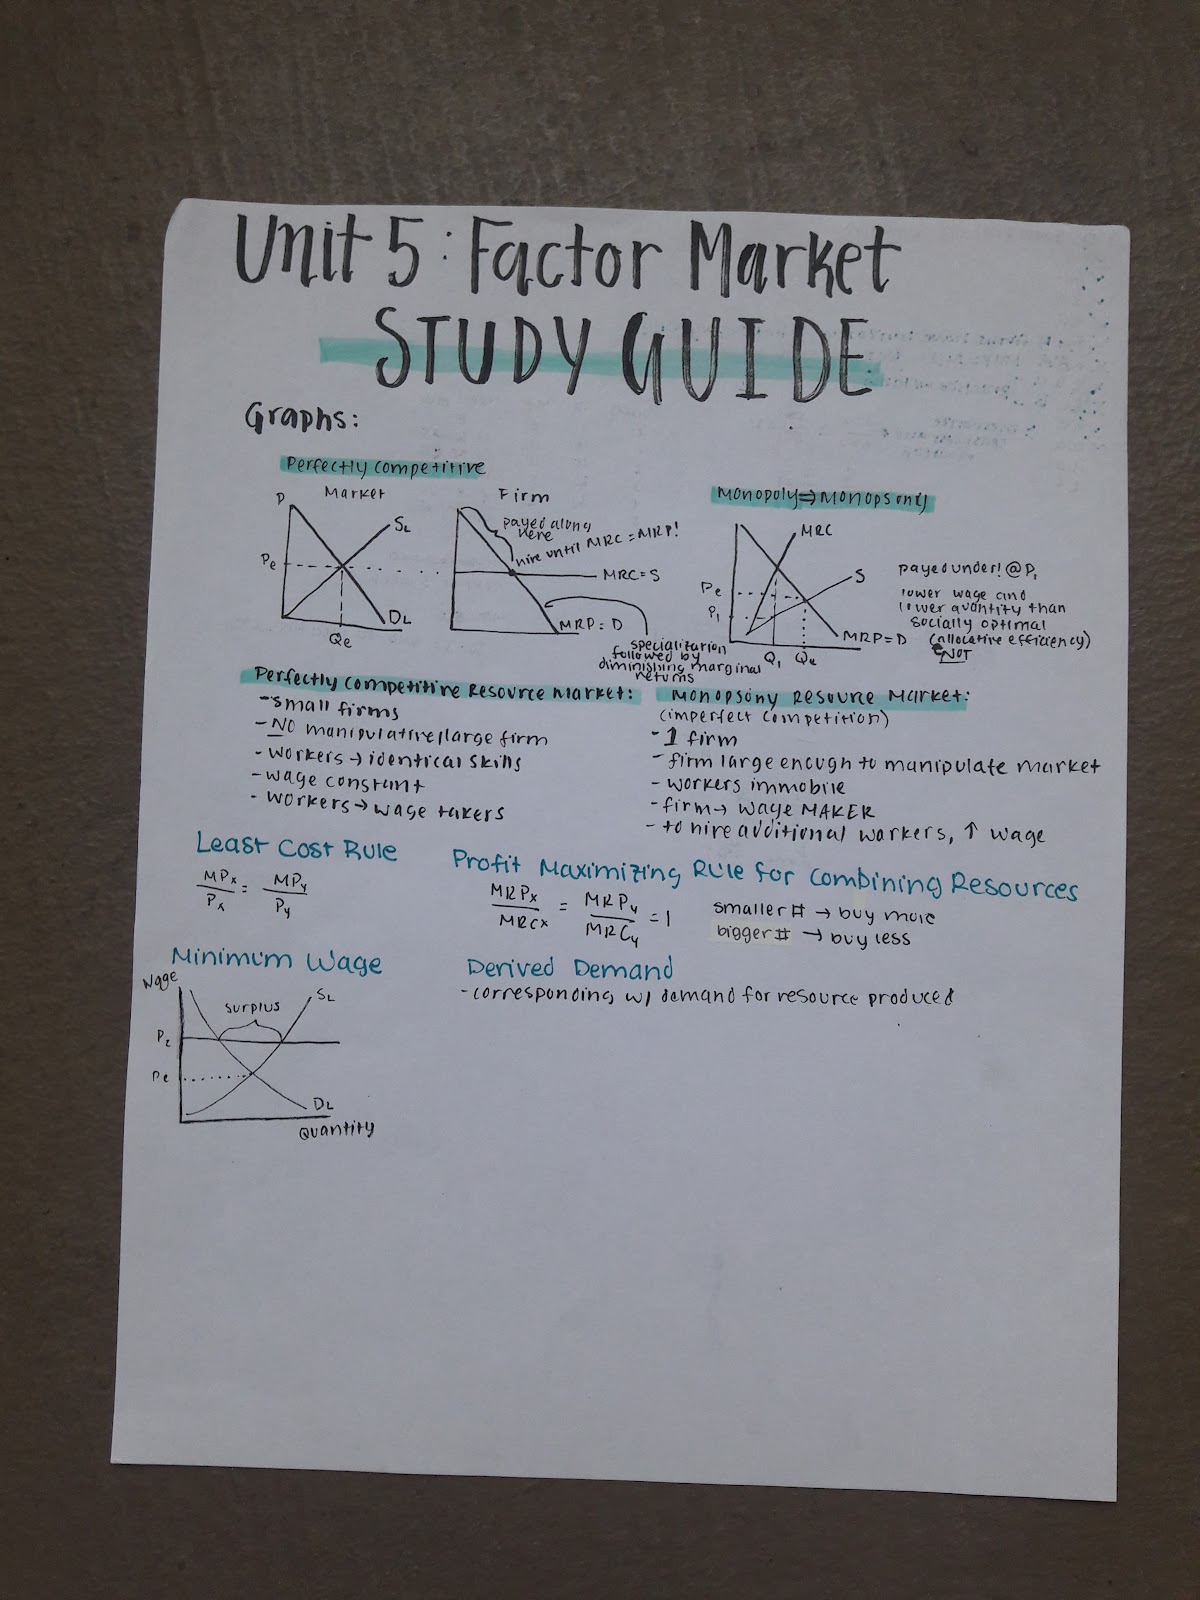 Unit 5: Factor Market
STUDY GUIDE
Graphs:
Perfectly competitive
Market
P
SL
Pe
DL
Qe
Firm
payed along
here
hire until MRC = MRP!
MRC = S
MRP = D
specialization
followed by
diminishing marginal
returns
Monopoly ⇒ Monopsony
MRC
S
Pe
P1
MRP = D
Q1 Qe
payed under! @ P1
lower wage and
lower quantity than
socially optimal
(allocative efficiency)
NOT
Perfectly Competitive Resource Market:
- small firms
- NO manipulative/large firm
- workers → identical skills
- wage constant
- workers → wage takers
Monopsony Resource Market:
(imperfect competition)
- 1 firm
- firm large enough to manipulate market
- workers immobile
- firm → wage MAKER
- to hire additional workers, ↑ wage
Least Cost Rule
MPx/Px = MPy/Py
Profit Maximizing Rule for Combining Resources
MRPx/MRCx = MRPy/MRCy = 1
smaller # → buy more
bigger # → buy less
Minimum Wage
Wage
surplus
SL
P2
Pe
DL
Quantity
Derived Demand
- corresponding w/ demand for resource produced